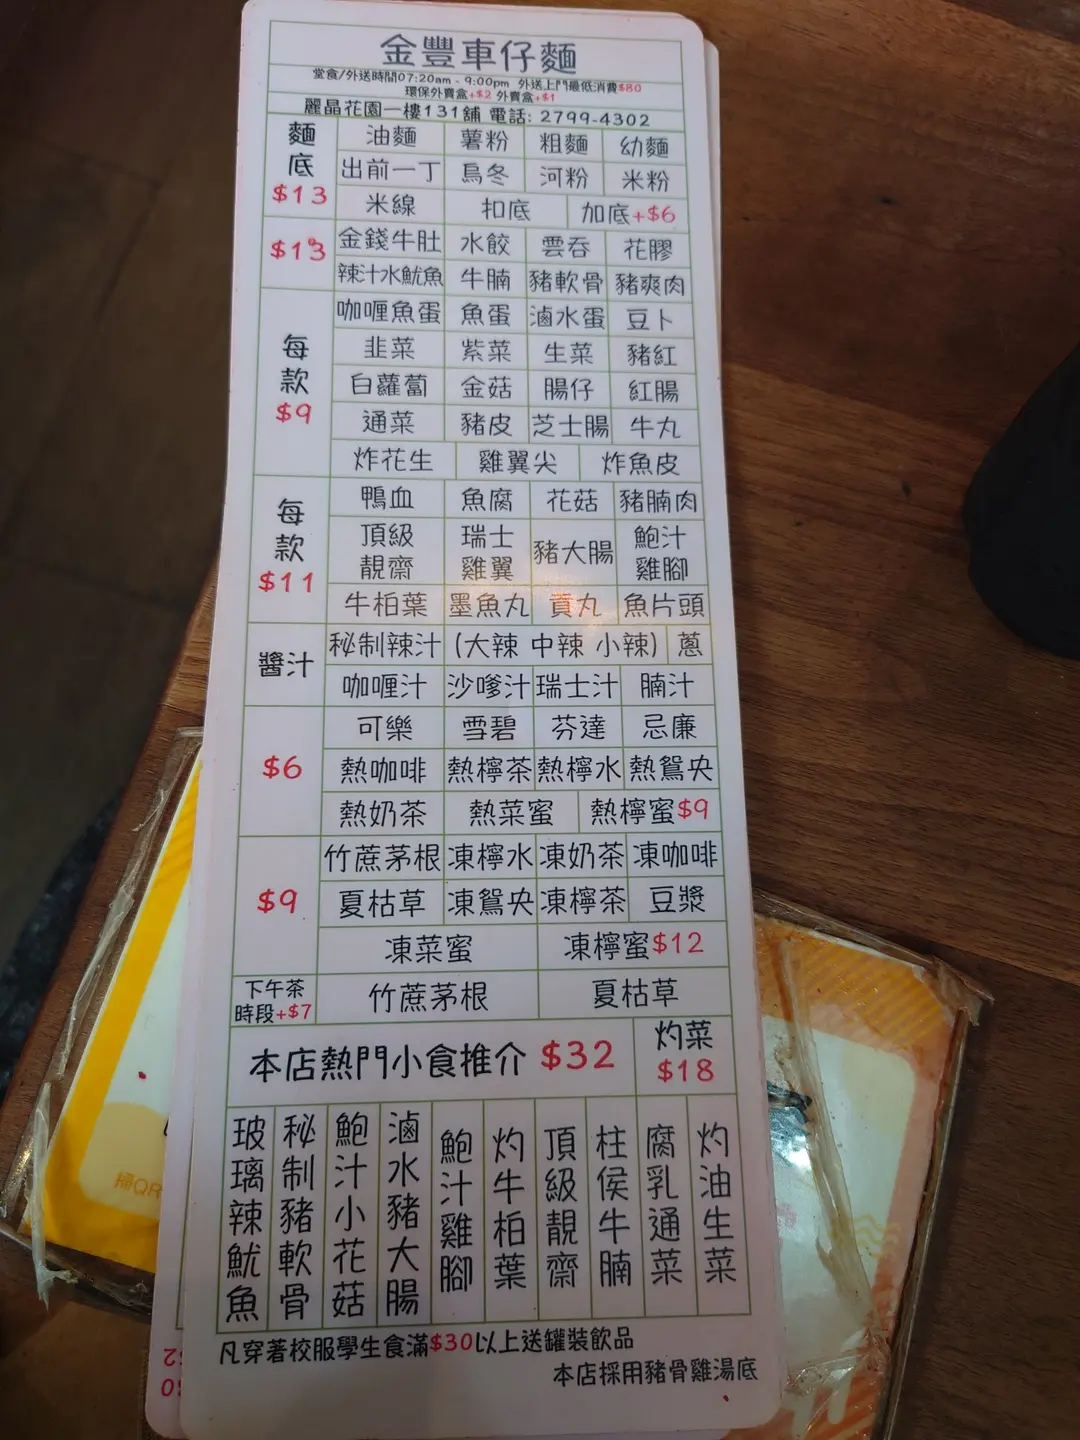 金豐車仔麵
堂食/外送時間07:20am - 9:00pm 外送上門最低消費$80
環保外賣盒+$2 外賣盒+$1
麗晶花園一樓131舖 電話: 2799-4302
麵底 $13
油麵 薯粉 粗麵 幼麵
出前一丁 烏冬 河粉 米粉
米線 扣底 加底+$6
$13
金錢牛肚 水餃 雲吞 花膠
辣汁水魷魚 牛腩 豬軟骨 豬爽肉
每款 $9
咖喱魚蛋 魚蛋 滷水蛋 豆卜
韭菜 紫菜 生菜 豬紅
白蘿蔔 金菇 腸仔 紅腸
通菜 豬皮 芝士腸 牛丸
炸花生 雞翼尖 炸魚皮
每款 $11
鴨血 魚腐 花菇 豬腩肉
頂級靚齋 瑞士雞翼 豬大腸 鮑汁雞腳
牛柏葉 墨魚丸 貢丸 魚片頭
醬汁
秘制辣汁 (大辣 中辣 小辣) 蔥
咖喱汁 沙嗲汁 瑞士汁 腩汁
$6
可樂 雪碧 芬達 忌廉
熱咖啡 熱檸茶 熱檸水 熱鴛央
熱奶茶 熱菜蜜 熱檸蜜$9
$9
竹蔗茅根 凍檸水 凍奶茶 凍咖啡
夏枯草 凍鴛央 凍檸茶 豆漿
凍菜蜜 凍檸蜜$12
下午茶時段+$7
竹蔗茅根 夏枯草
本店熱門小食推介 $32
灼菜 $18
玻璃辣魷魚
秘制豬軟骨
鮑汁小花菇
滷水豬大腸
鮑汁雞腳
灼牛柏葉
頂級靚齋
柱侯牛腩
腐乳通菜
灼油生菜
凡穿著校服學生食滿$30以上送罐裝飲品
本店採用豬骨雞湯底
掃QR